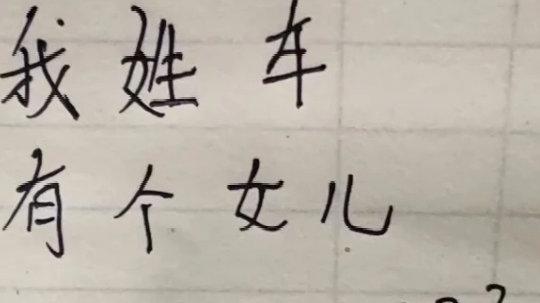 我姓车
有个女儿